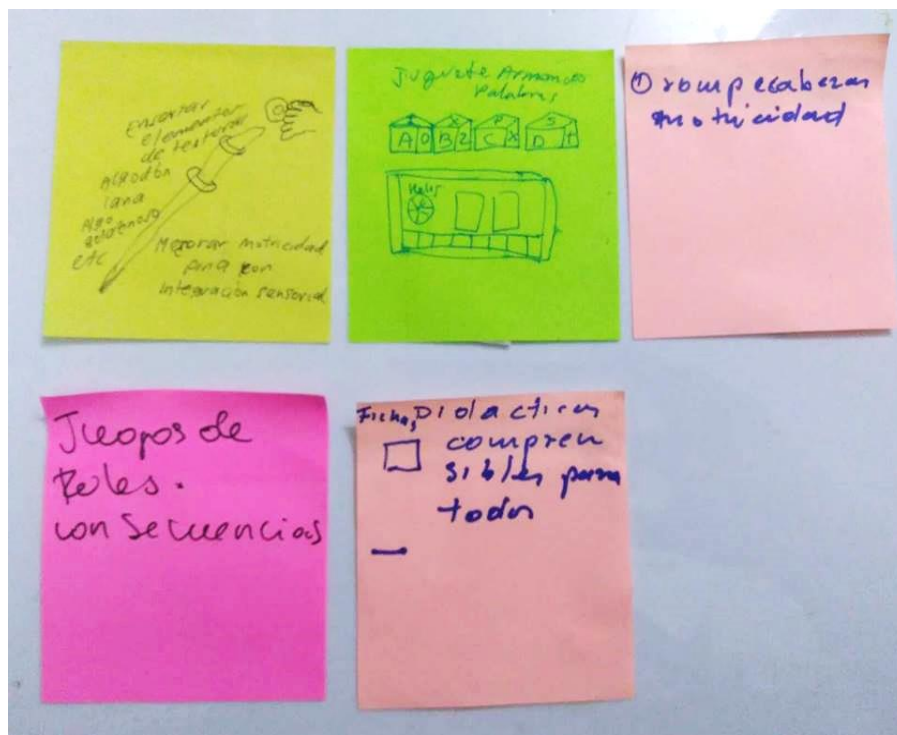 Ensartar
elementos
de texturas
Algodón
lana
Algo
etc
Mejorar motricidad
fina con
integración sensorial
Juguete Armamos
Palabras
A O B 2 C X D
Reloj
① rompecabezas
motricidad
Juegos de
Roles.
con secuencias
Fichas Didacticas
compren
sibles para
todos